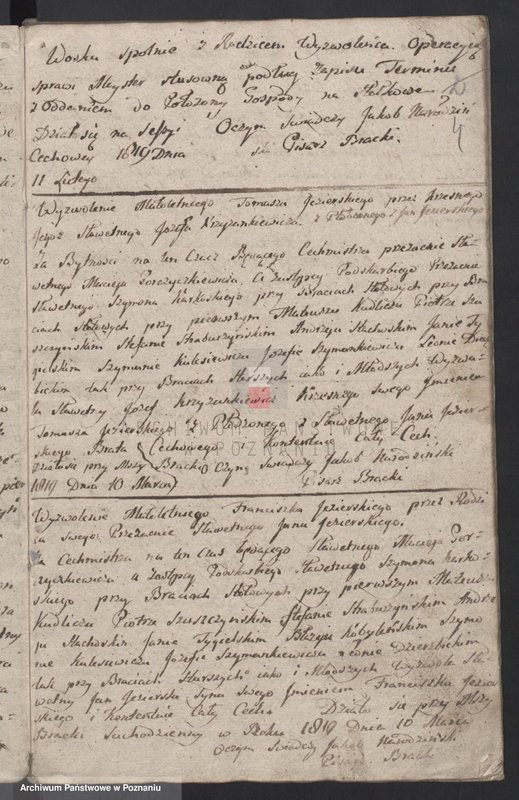 Worku spolnie z Rodzicem Wyzwolenca. Operacyą
sprawi Mayster stusowną podług Zapisu Terminu
z Oddaniem do Położony Gospody na Stołkowe
Działo się na Sessyi Oczym Swiadczy Jakob Narodzinski
Cechowey 1819 Dnia Pisarz Bracki.
11 Lutego
4
Wyzwolenie Małoletniego Tomasza Jezierskiego przez Krzesnego
Jegoż Sławetnego Jozefa Krzyzankiewicza z Płodzonego z Jan Jezierskiego
Za Bytności na ten Czas Będącego Cechmistrza przezacnie Sła-
wetnego Macieja Gorczyczkiewicza, Ci Zastępcy Podskarbiego Przezacnie
Sławetnego Szymona Karkoskiego przy Braciach Stołowych przy Bra
ciach Stołowych przy pierwszym Mateuszu Kudliczu Piotrze Sza
szczyńskim Stefanie Strabuszyńskim Andrzeju Stachoskim Janie Ty
gielskim Szymonie Kulesiewiczu Jozefie Szymankiewiczu Leonie Dzierz
bickim tak przy Braciach Starszych iako i Młodszych Wyzwa-
la Sławetny Jozef Krzyzankiewicz Krzesnego Swego Jmieniem
Tomasza Jezierskiego z Płodzonego z Sławetnego Jana Jezier-
skiego Brata Cechowego i Konsentuie Cały Cech.
Działo się przy Mszy Bracki Oczym Swiadczy Jakob Narodzinski
1819 Dnia 10 Marca Pisarz Bracki
Wyzwolenie Małoletniego Franciszka Jezierskiego przez Rodzi
ca swego Przezacnie Sławetnego Jana Jezierskiego.
Za Cechmistrza na ten Czas będącego Sławetnego Macieja Gor-
czyczkiewicza a Zastępcy Podskarbiego Sławetnego Szymona Karko-
skiego przy Braciach Stołowych przy pierwszym Mateuszu
Kudliczu Piotrze Szaszczyńskim Stefanie Strabuszyńskim Andrze
ju Stachoskim Janie Tygielskim Błażeju Kobyleńskim Szymo
nie Kulesiewiczu Jozefie Szymankiewiczu Leonie Dzierzbickim
tak przy Braciach Starszych iako i Młodszych Wyzwala Sła-
wetny Jan Jezierski Syna Swego Jmieniem Franciszka Jezier
skiego i Konsentuie Cały Cech Działo się przy Mszy
Bracki Suchodzienny w Roku 1819 Dnia 10 Marca
Oczym Swiadczy Jakob Narodzinski
Pisarz Bracki
ARCHIWUM PAŃSTWOWE
POZNAŃ
Archiwum Państwowe w Poznaniu